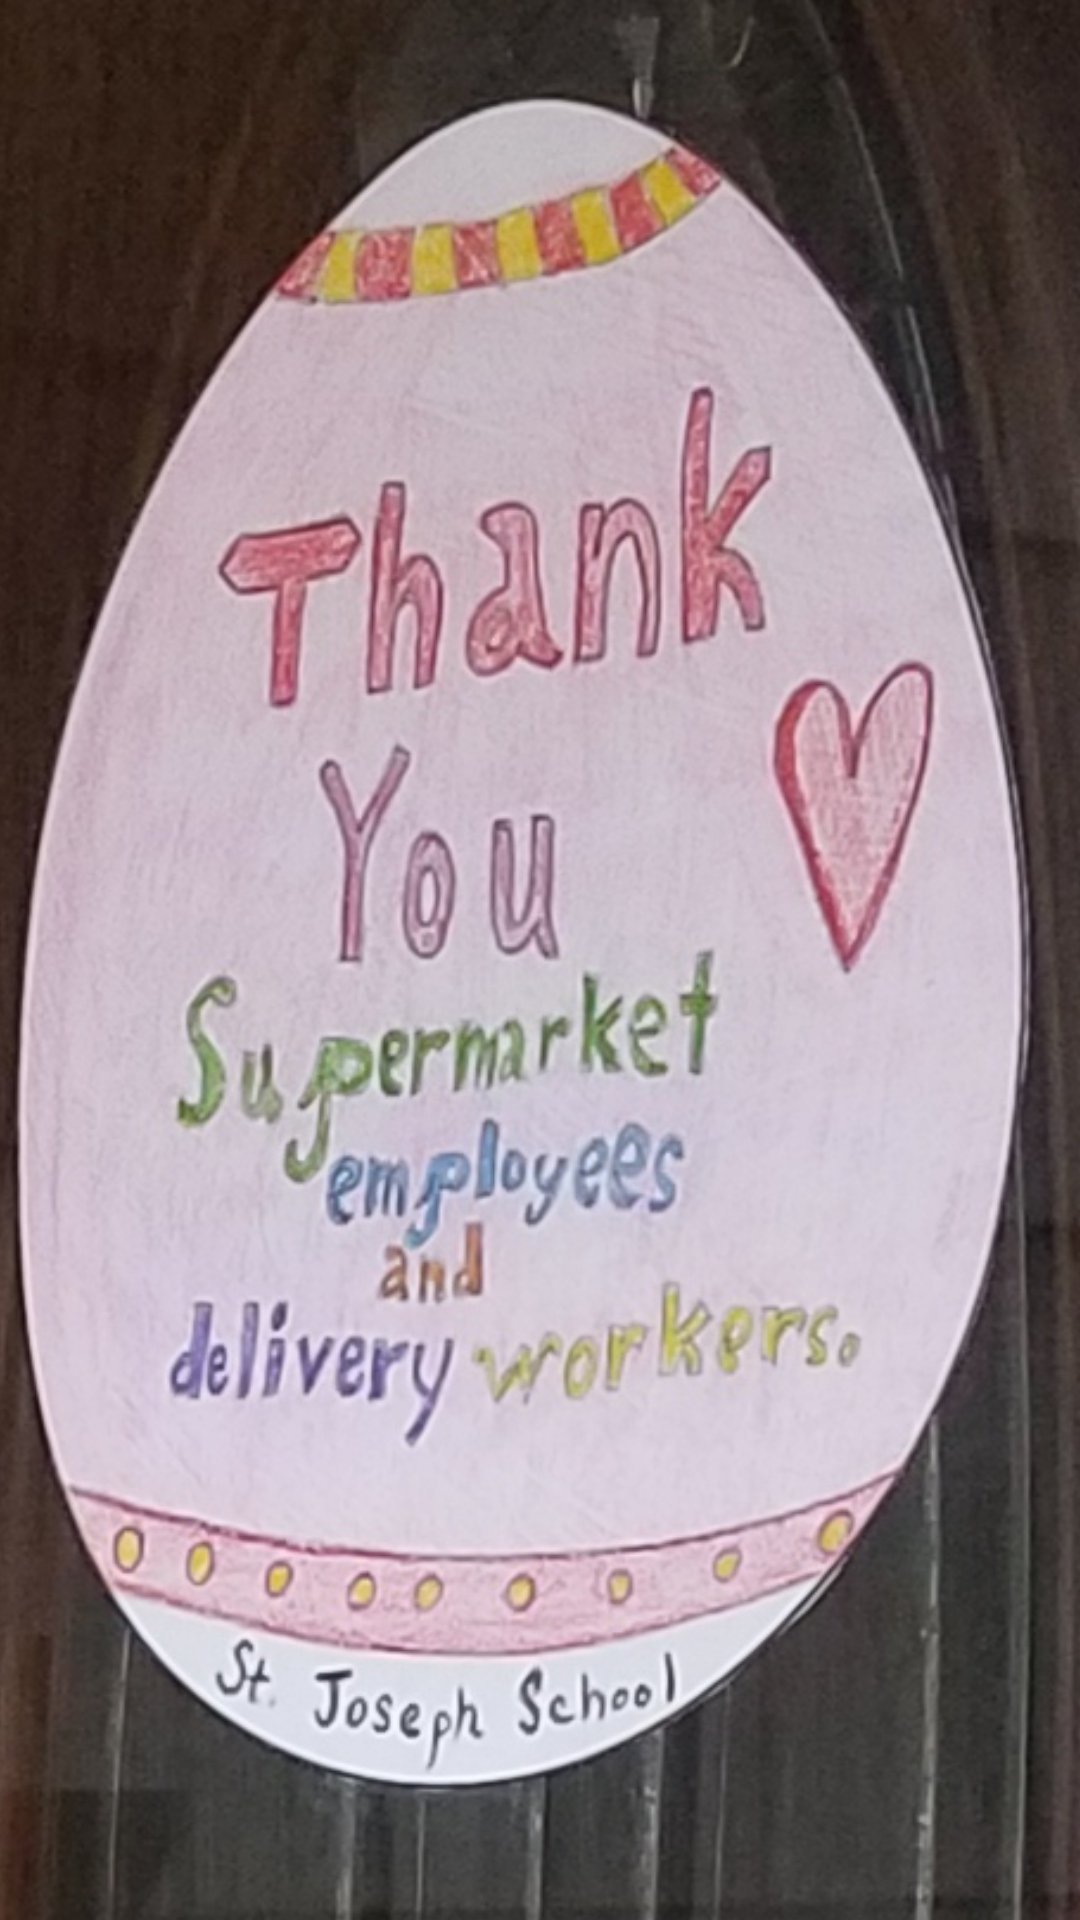 Thank
You
Supermarket
employees
and
delivery workers.
St. Joseph School